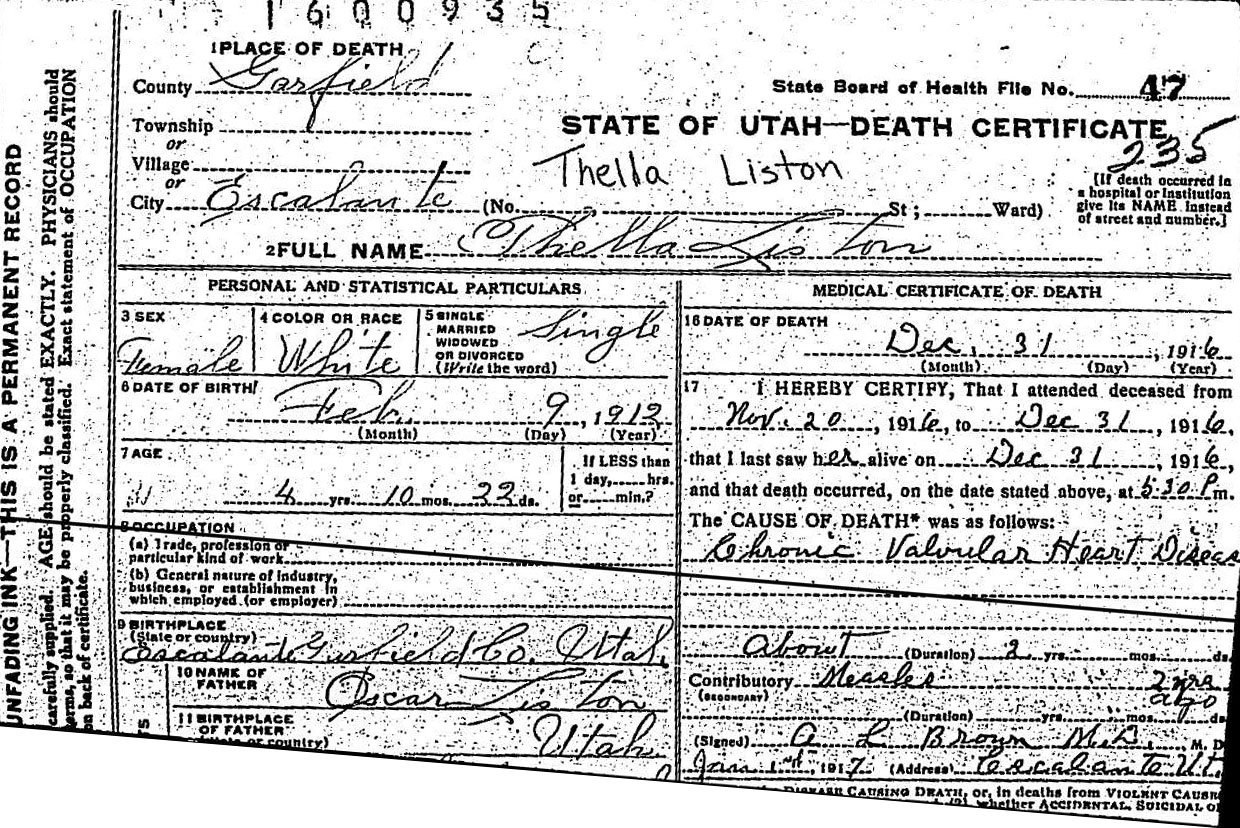 1600935
1 PLACE OF DEATH
County Garfield
State Board of Health File No. 47
Township
or
STATE OF UTAH—DEATH CERTIFICATE
235
Village
or
Thella Liston
[If death occurred in
a hospital or institution
give its NAME instead
of street and number.]
City Escalante (No. St; Ward)
2 FULL NAME Thella Liston
PERSONAL AND STATISTICAL PARTICULARS
3 SEX
Female
4 COLOR OR RACE
White
5 SINGLE
MARRIED
WIDOWED
OR DIVORCED
(Write the word)
Single
6 DATE OF BIRTH
Feb. 9, 1912
(Month) (Day) (Year)
7 AGE
4 yrs. 10 mos. 22 ds.
If LESS than
1 day, hrs.
or min.?
8 OCCUPATION
(a) Trade, profession or
particular kind of work
(b) General nature of industry,
business, or establishment in
which employed (or employer)
9 BIRTHPLACE
(State or country)
Escalante Garfield Co. Utah.
10 NAME OF
FATHER
Oscar Liston
11 BIRTHPLACE
OF FATHER
(State or country)
Utah
MEDICAL CERTIFICATE OF DEATH
16 DATE OF DEATH
Dec. 31, 1916
(Month) (Day) (Year)
17 I HEREBY CERTIFY, That I attended deceased from
Nov. 20, 1916, to Dec 31, 1916,
that I last saw her alive on Dec 31, 1916,
and that death occurred, on the date stated above, at 5:30 P m.
The CAUSE OF DEATH* was as follows:
Chronic Valvular Heart Diseas
About (Duration) 2 yrs. mos. ds.
Contributory Measles 2 yrs
(SECONDARY) ago
(Duration) yrs. mos. ds
(Signed) A L Brown M.D., M. D
Jan 1st, 1917 (Address) Escalante Ut.
DISEASE CAUSING DEATH, or, in deaths from VIOLENT CAUSE
whether ACCIDENTAL, SUICIDAL O
UNFADING INK—THIS IS A PERMANENT RECORD
carefully supplied. AGE should be stated EXACTLY. PHYSICIANS should
terms, so that it may be properly classified. Exact statement of OCCUPATION
on back of certificate.